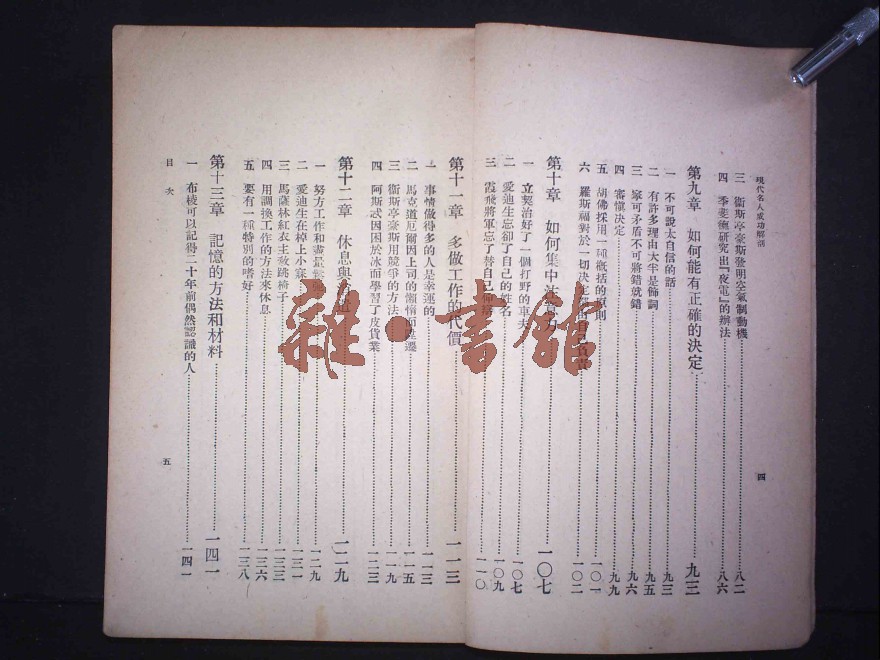 現代名人成功解剖
三 衞斯亭豪斯發明空氣制動機 八二
四 季斐德研究出『夜電』的辦法 八六
第九章 如何能有正確的決定 九三
一 不可說太自信的話 九三
二 有許多理由大半是飾詞 九五
三 寧可矛盾不可將錯就錯 九六
四 審愼決定 九九
五 胡佛採用一種概括的原則 一〇一
六 羅斯福對於一切決定 自己 一〇二
第十章 如何集中 力 一〇七
一 立契治好了一個打野的車夫 一〇七
二 愛迪生忘卻了自己的姓名 一〇九
三 霞飛將軍忘了替自己 一一〇
四
第十一章 多做工作的代價 一一三
一 事情做得多的人是幸運的 一一三
二 馬克道厄爾因上司的懶惰而 遷 一一五
三 衞斯亭豪斯用競爭的方法 一一九
四 阿斯武因困於冰而學習了皮貨業 一二三
第十二章 休息與 一二九
一 努力工作和盡量 一二九
二 愛迪生在棹上小寐 一三一
三 馬薩林紅衣主敎跳椅子 一三三
四 用調換工作的方法來休息 一三六
五 要有一種特別的嗜好 一三八
第十三章 記憶的方法和材料 一四一
目次
一 布棱可以記得二十年前偶然認識的人 一四一
五
雜·書館